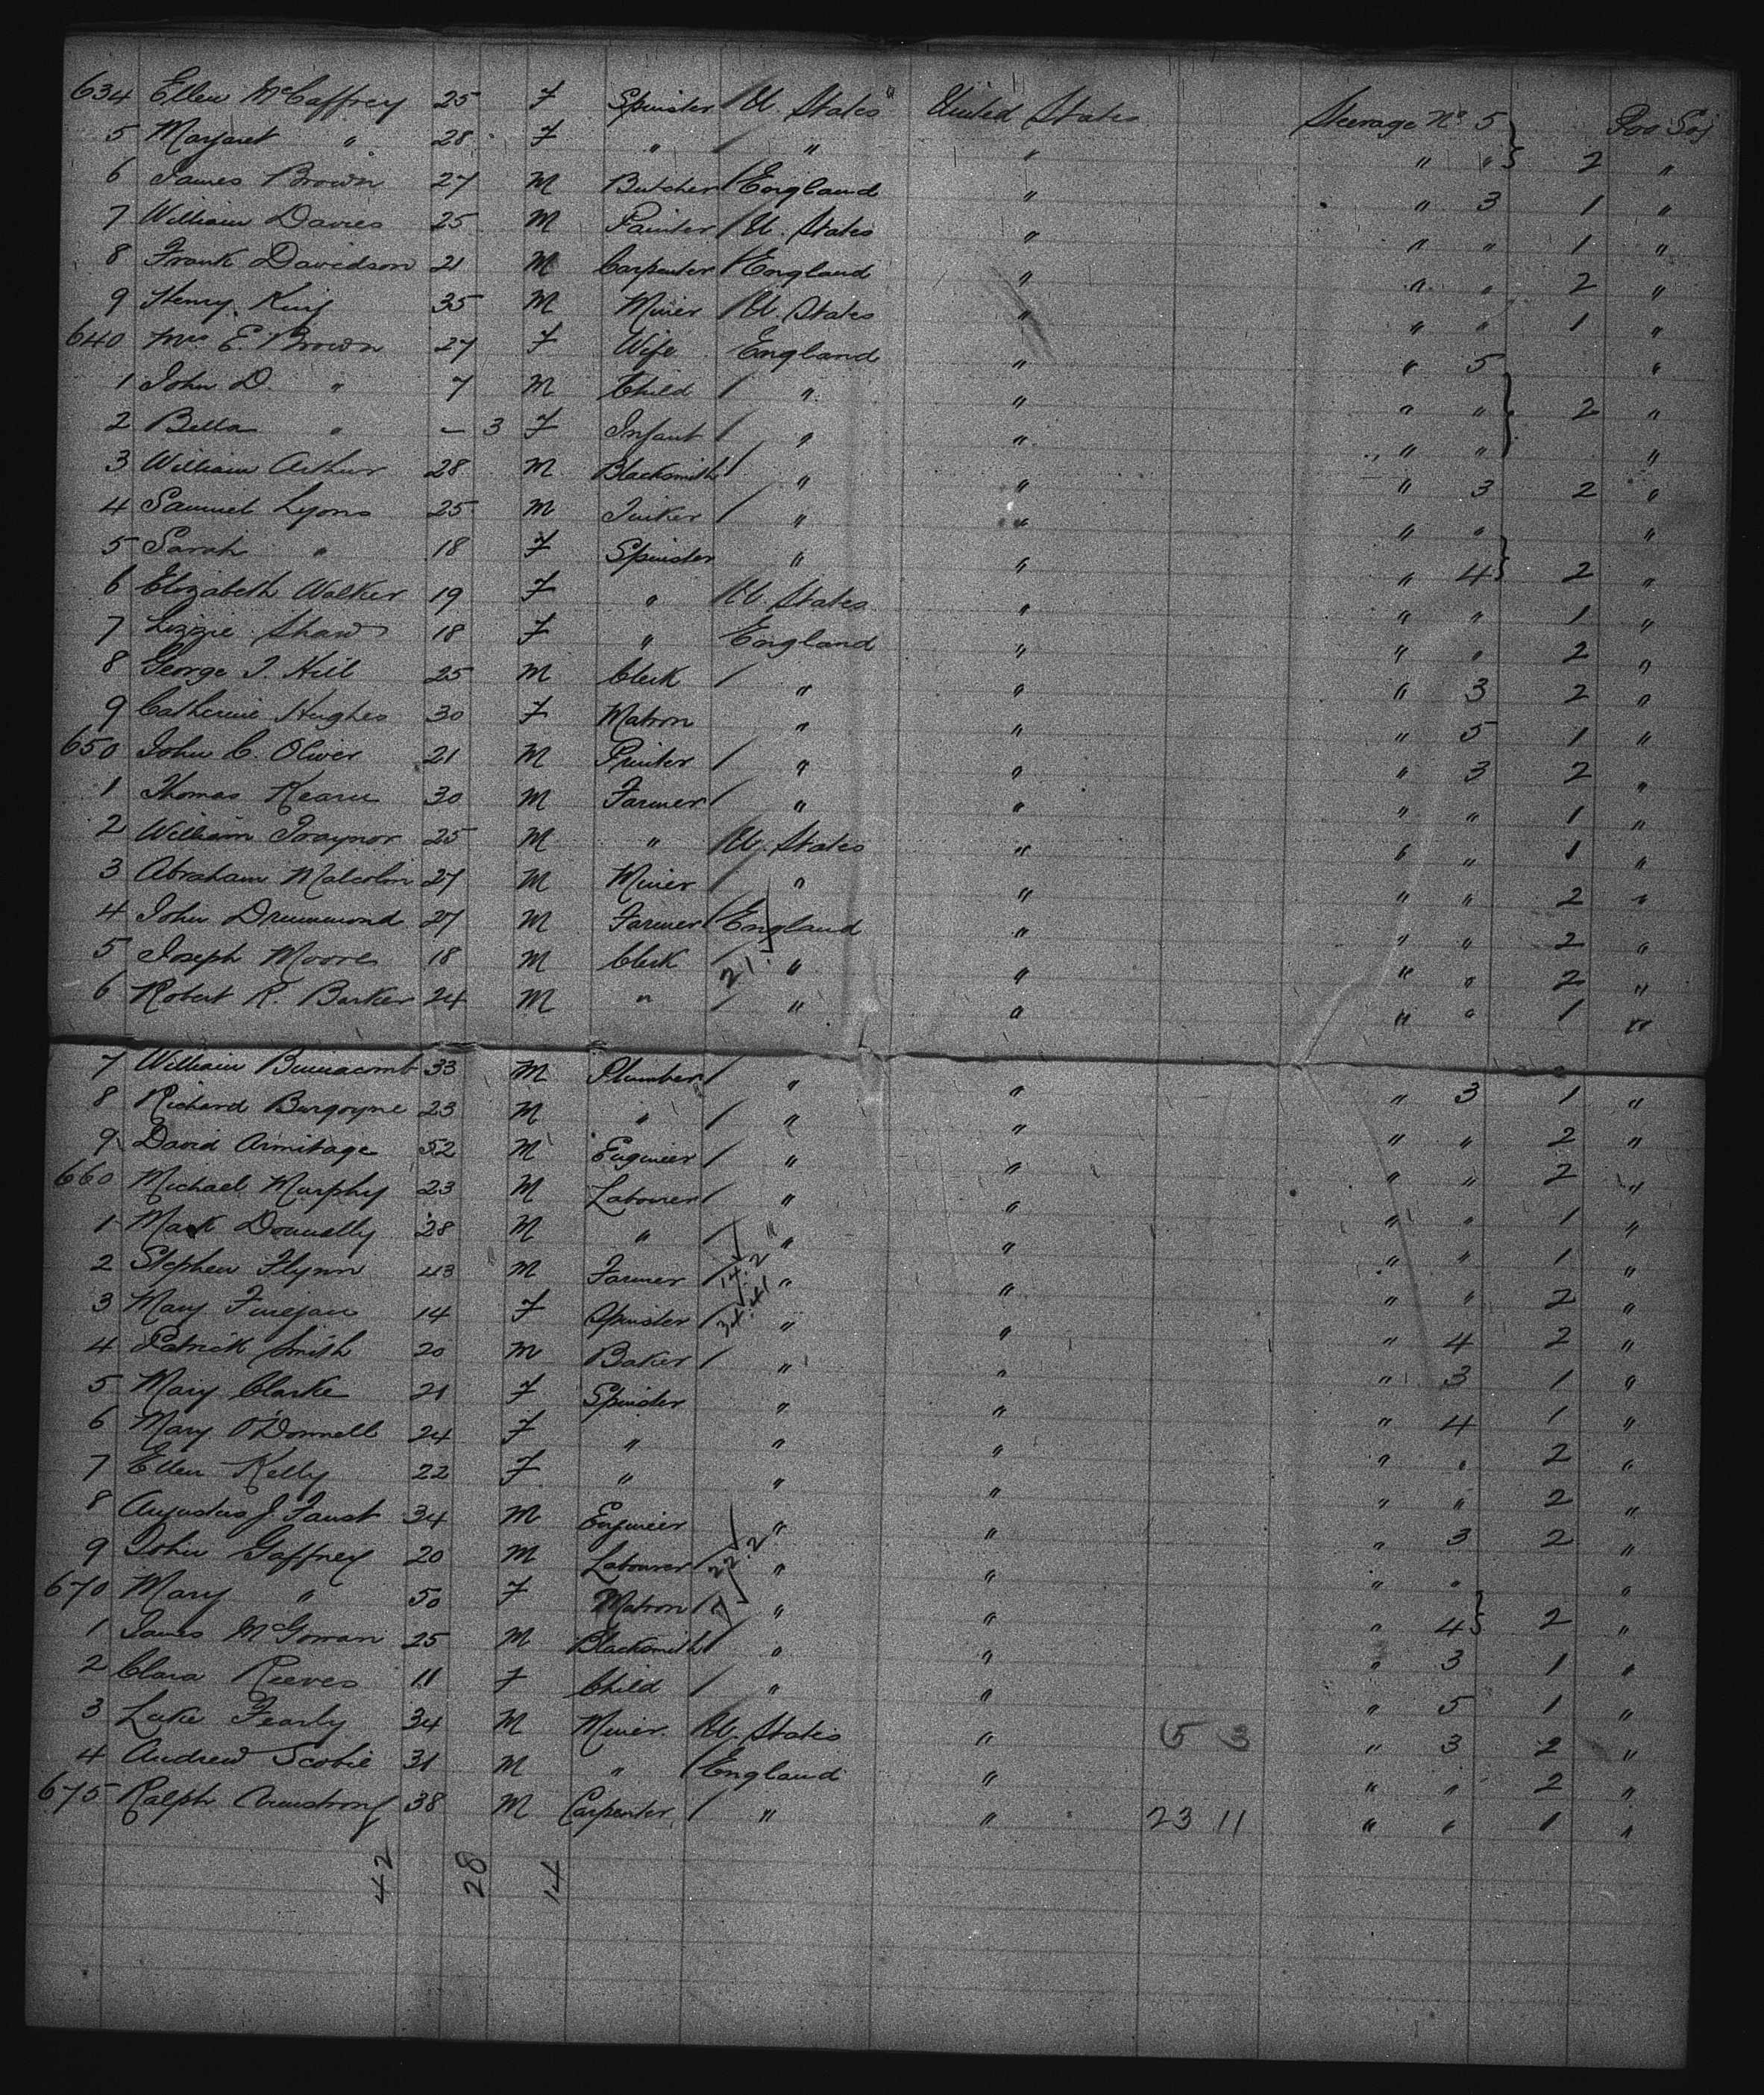 634 Ellen McCaffrey 25 F Spinster U. States United States Steerage No 5 Pro Soj
5 Margaret " 28 F " " " " " 2 "
6 James Brown 27 M Butcher England " " 3 1 "
7 William Davies 25 M Painter U. States " " " 1 "
8 Frank Davidson 21 M Carpenter England " " " 2 "
9 Henry King 35 M Miner U. States " " " 1 "
640 Mrs E. Brown 27 F Wife England " " 5 "
1 John D. " 7 M Child " " " " 2 "
2 Bella " - 3 F Infant " " " " "
3 William Arthur 28 M Blacksmith " " " 3 2 "
4 Samuel Lyons 25 M " " " " "
5 Sarah " 18 F Spinster " " " 4 2 "
6 Elizabeth Walker 19 F " U. States " " " 1 "
7 Lizzie Shaw 18 F " England " " " 2 "
8 George T. Hill 25 M Clerk " " " 3 2 "
9 Catherine Hughes 30 F Matron " " " 5 1 "
650 John C. Oliver 21 M Printer " " " 3 2 "
1 Thomas Kearn 30 M Farmer " " " " 1 "
2 William Traynor 25 M " U. States " " " 1 "
3 Abraham Malcolm 27 M Miner " " " " 2 "
4 John Drummond 27 M Farmer England " " " 2 "
5 Joseph Moores 18 M Clerk 21. " " " " 2 "
6 Robert R. Barker 24 M " " " " " 1 "
7 William Binnacomb 33 M Plumber " " " 3 1 "
8 Richard Burgoyne 23 M " " " " " 2 "
9 David Armitage 52 M Engineer " " " " 2 "
660 Michael Murphy 23 M Labourer " " " " 1 "
1 Mark Donnelly 28 M " " " " " 1 "
2 Stephen Flynn 43 M Farmer 14.2 " " " " 2 "
3 Mary Finegan 14 F Spinster 34.41 " " " 4 2 "
4 Patrick Smith 20 M Baker " " " 3 1 "
5 Mary Clarke 21 F Spinster " " " 4 1 "
6 Mary O'Donnell 24 F " " " " " 2 "
7 Ellen Kelly 22 F " " " " " 2 "
8 Augustus J. Faust 34 M Engineer " " " 3 2 "
9 John Gaffney 20 M Labourer 22.2 " " " " "
670 Mary " 50 F Matron " " " 4 2 "
1 James McGowan 25 M Blacksmith " " " 3 1 "
2 Clara Reeves 11 F Child " " " 5 1 "
3 Luke Fearly 34 M Miner U. States " 5 3 " 3 2 "
4 Andrew Scobie 31 M " England " " " 2 "
675 Ralph Armstrong 38 M Carpenter " " 23 11 " " 1 "
42 28 14